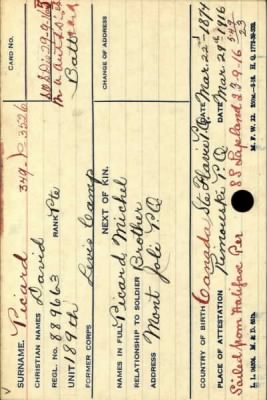 SURNAME. Picard 349-P-3526
CHRISTIAN NAMES David
REGL. No. 889663 RANK Pte
UNIT 189th
FORMER CORPS Levis Camp
NEXT OF KIN.
NAMES IN FULL Picard Michel
RELATIONSHIP TO SOLDIER Brother
ADDRESS Mont Joli P.Q.
COUNTRY OF BIRTH Canada Ste Flavie P.Q. DATE Mar. 22nd 1874
PLACE OF ATTESTATION Rimouski P.Q. DATE Mar. 29th 1916
Sailed from Halifax Per SS Lapland 23-9-16
L. L. M. & D. M. F. W. 22
CARD No.
CHANGE OF ADDRESS